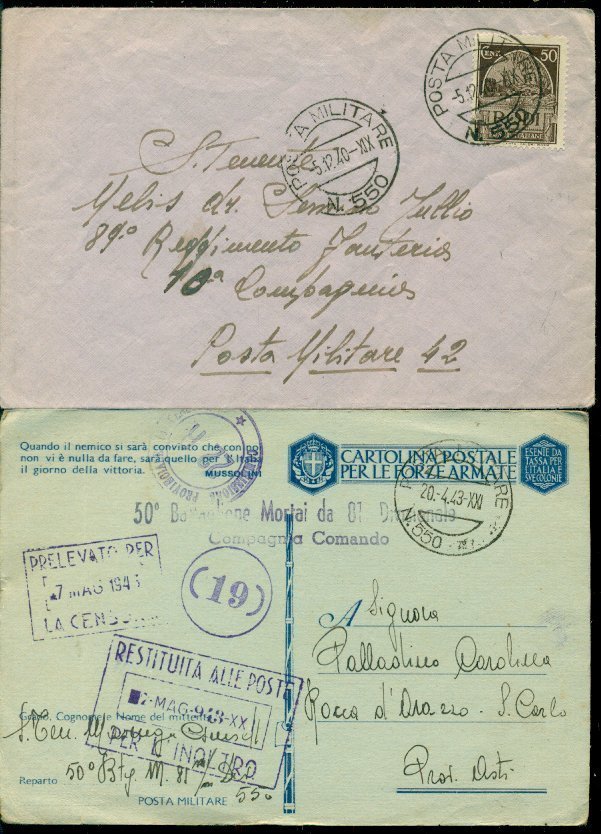 POSTA MILITARE
5.12.40-XIX
N.550
POSTA MILITARE
5.12
N.550
CENT. 50
ITALIANE
S. Tenente
Melis dr. Tullio
89º Reggimento Fanteria
10ª Compagnia
Posta Militare 42
Quando il nemico si sarà convinto che con noi
non vi è nulla da fare, sarà quello per l'Italia
il giorno della vittoria. MUSSOLINI
PROVINCIA
CARTOLINA POSTALE
PER LE FORZE ARMATE
ESENTE DA
TASSA PER
L'ITALIA E
SVE COLONIE
MILITARE
20.-4.43-XXI
N.550
50º Battaglione Mortai da 81 Divisionale
Compagnia Comando
PRELEVATO PER
7 MAG 194
LA CENSURA
(19)
RESTITUITA ALLE POSTE
MAG. 943-XXI
PER L'INOLTRO
A Signora
Palladino Carolina
Rocca d'Arazzo - S. Carlo
Prov. Asti
Grado, Cognome e Nome del mittente
S. Ten.
Reparto 50º Btg. M. 81
POSTA MILITARE 550